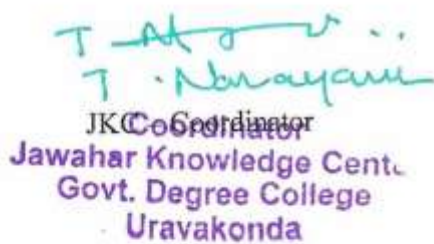 T
T. Narayana
JKC - Coordinator
Coordinator
Jawahar Knowledge Cent
Govt. Degree College
Uravakonda